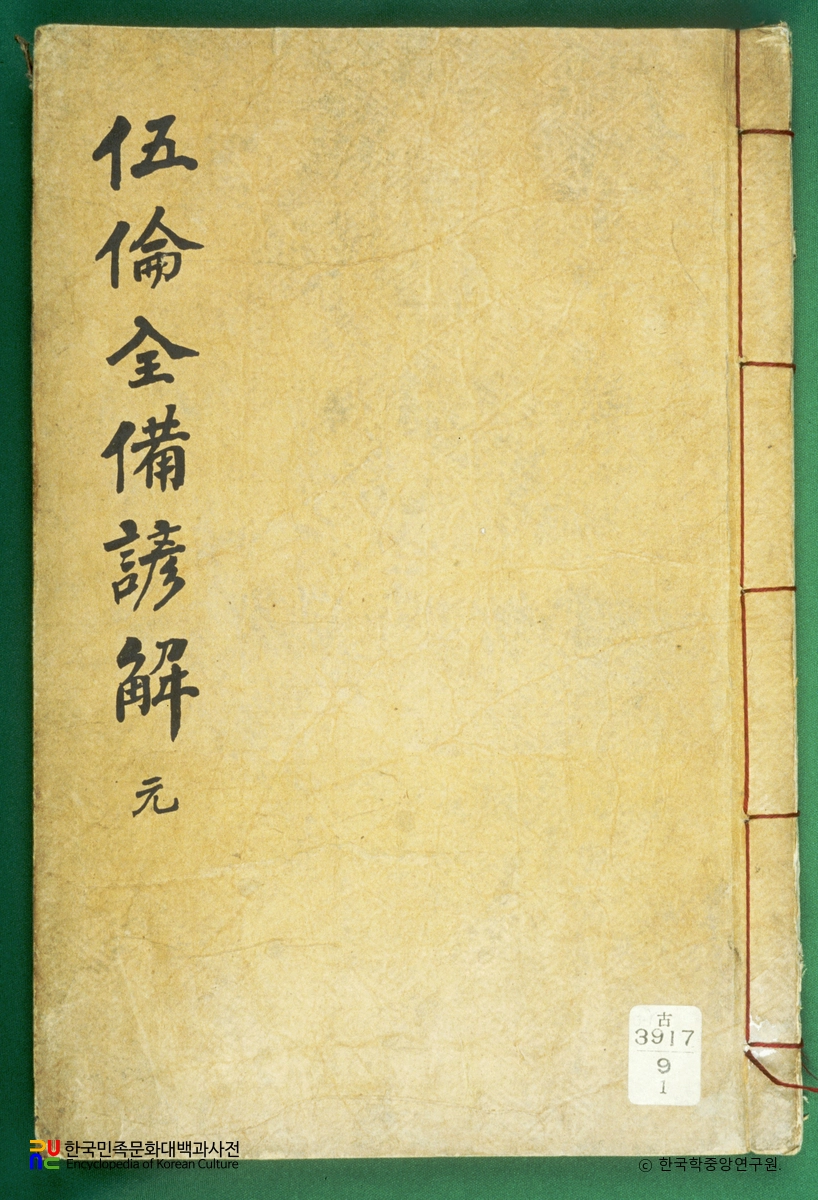 伍倫全備諺解 元
古
3917
9
1
한국민족문화대백과사전
Encyclopedia of Korean Culture
© 한국학중앙연구원.